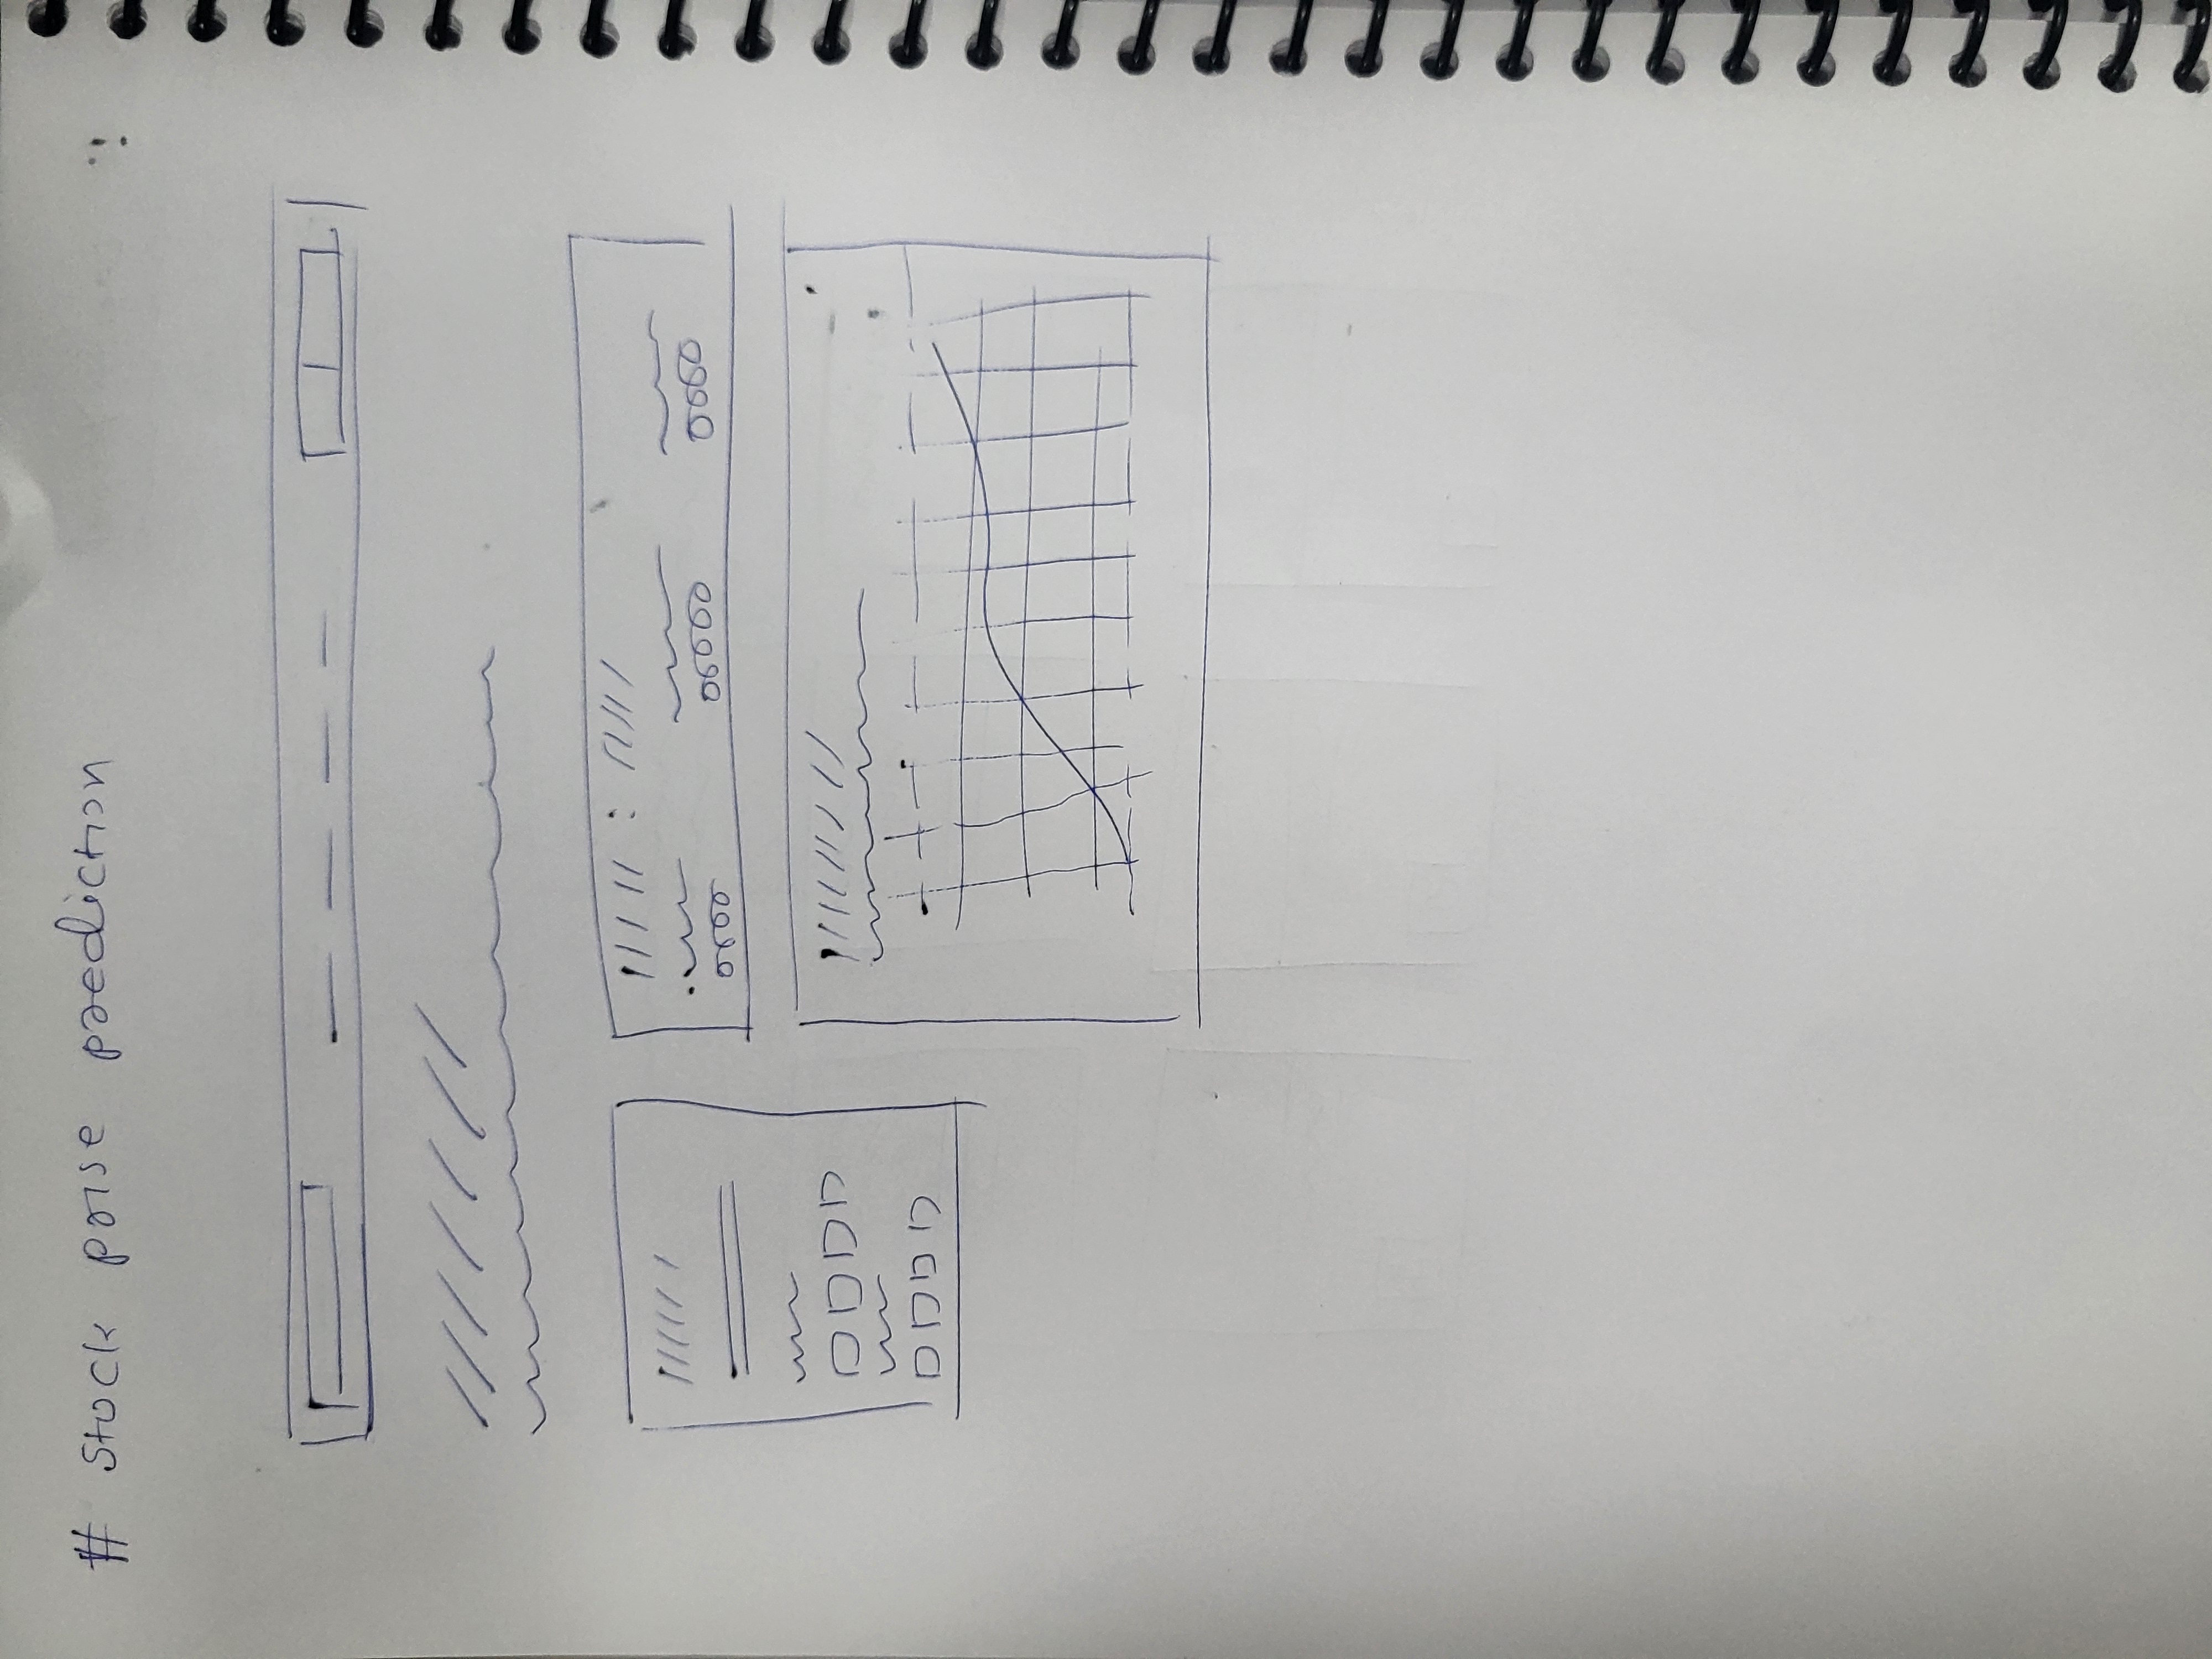 # Stock porse prediction